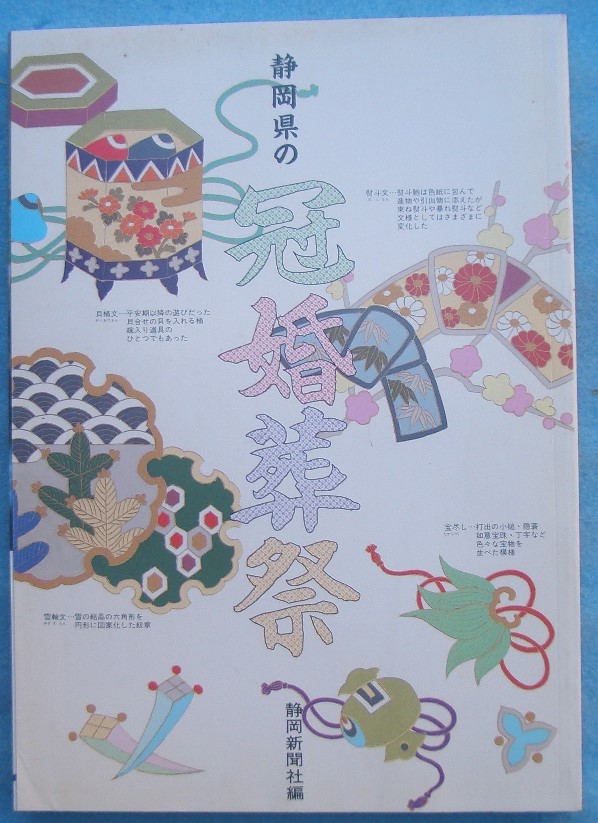 静岡県の
冠婚葬祭
熨斗文…熨斗鮑は色紙に包んで
進物や引出物に添えたが
束ね熨斗や暴れ熨斗など
文様としてはさまざまに
変化した
貝桶文…平安期以降の遊びだった
貝合せの貝を入れる桶
嫁入り道具の
ひとつでもあった
宝尽し…打出の小槌・隠蓑
如意宝珠・丁字など
色々な宝物を
並べた模様
雪輪文…雪の結晶の六角形を
円形に図案化した紋章
静岡新聞社編